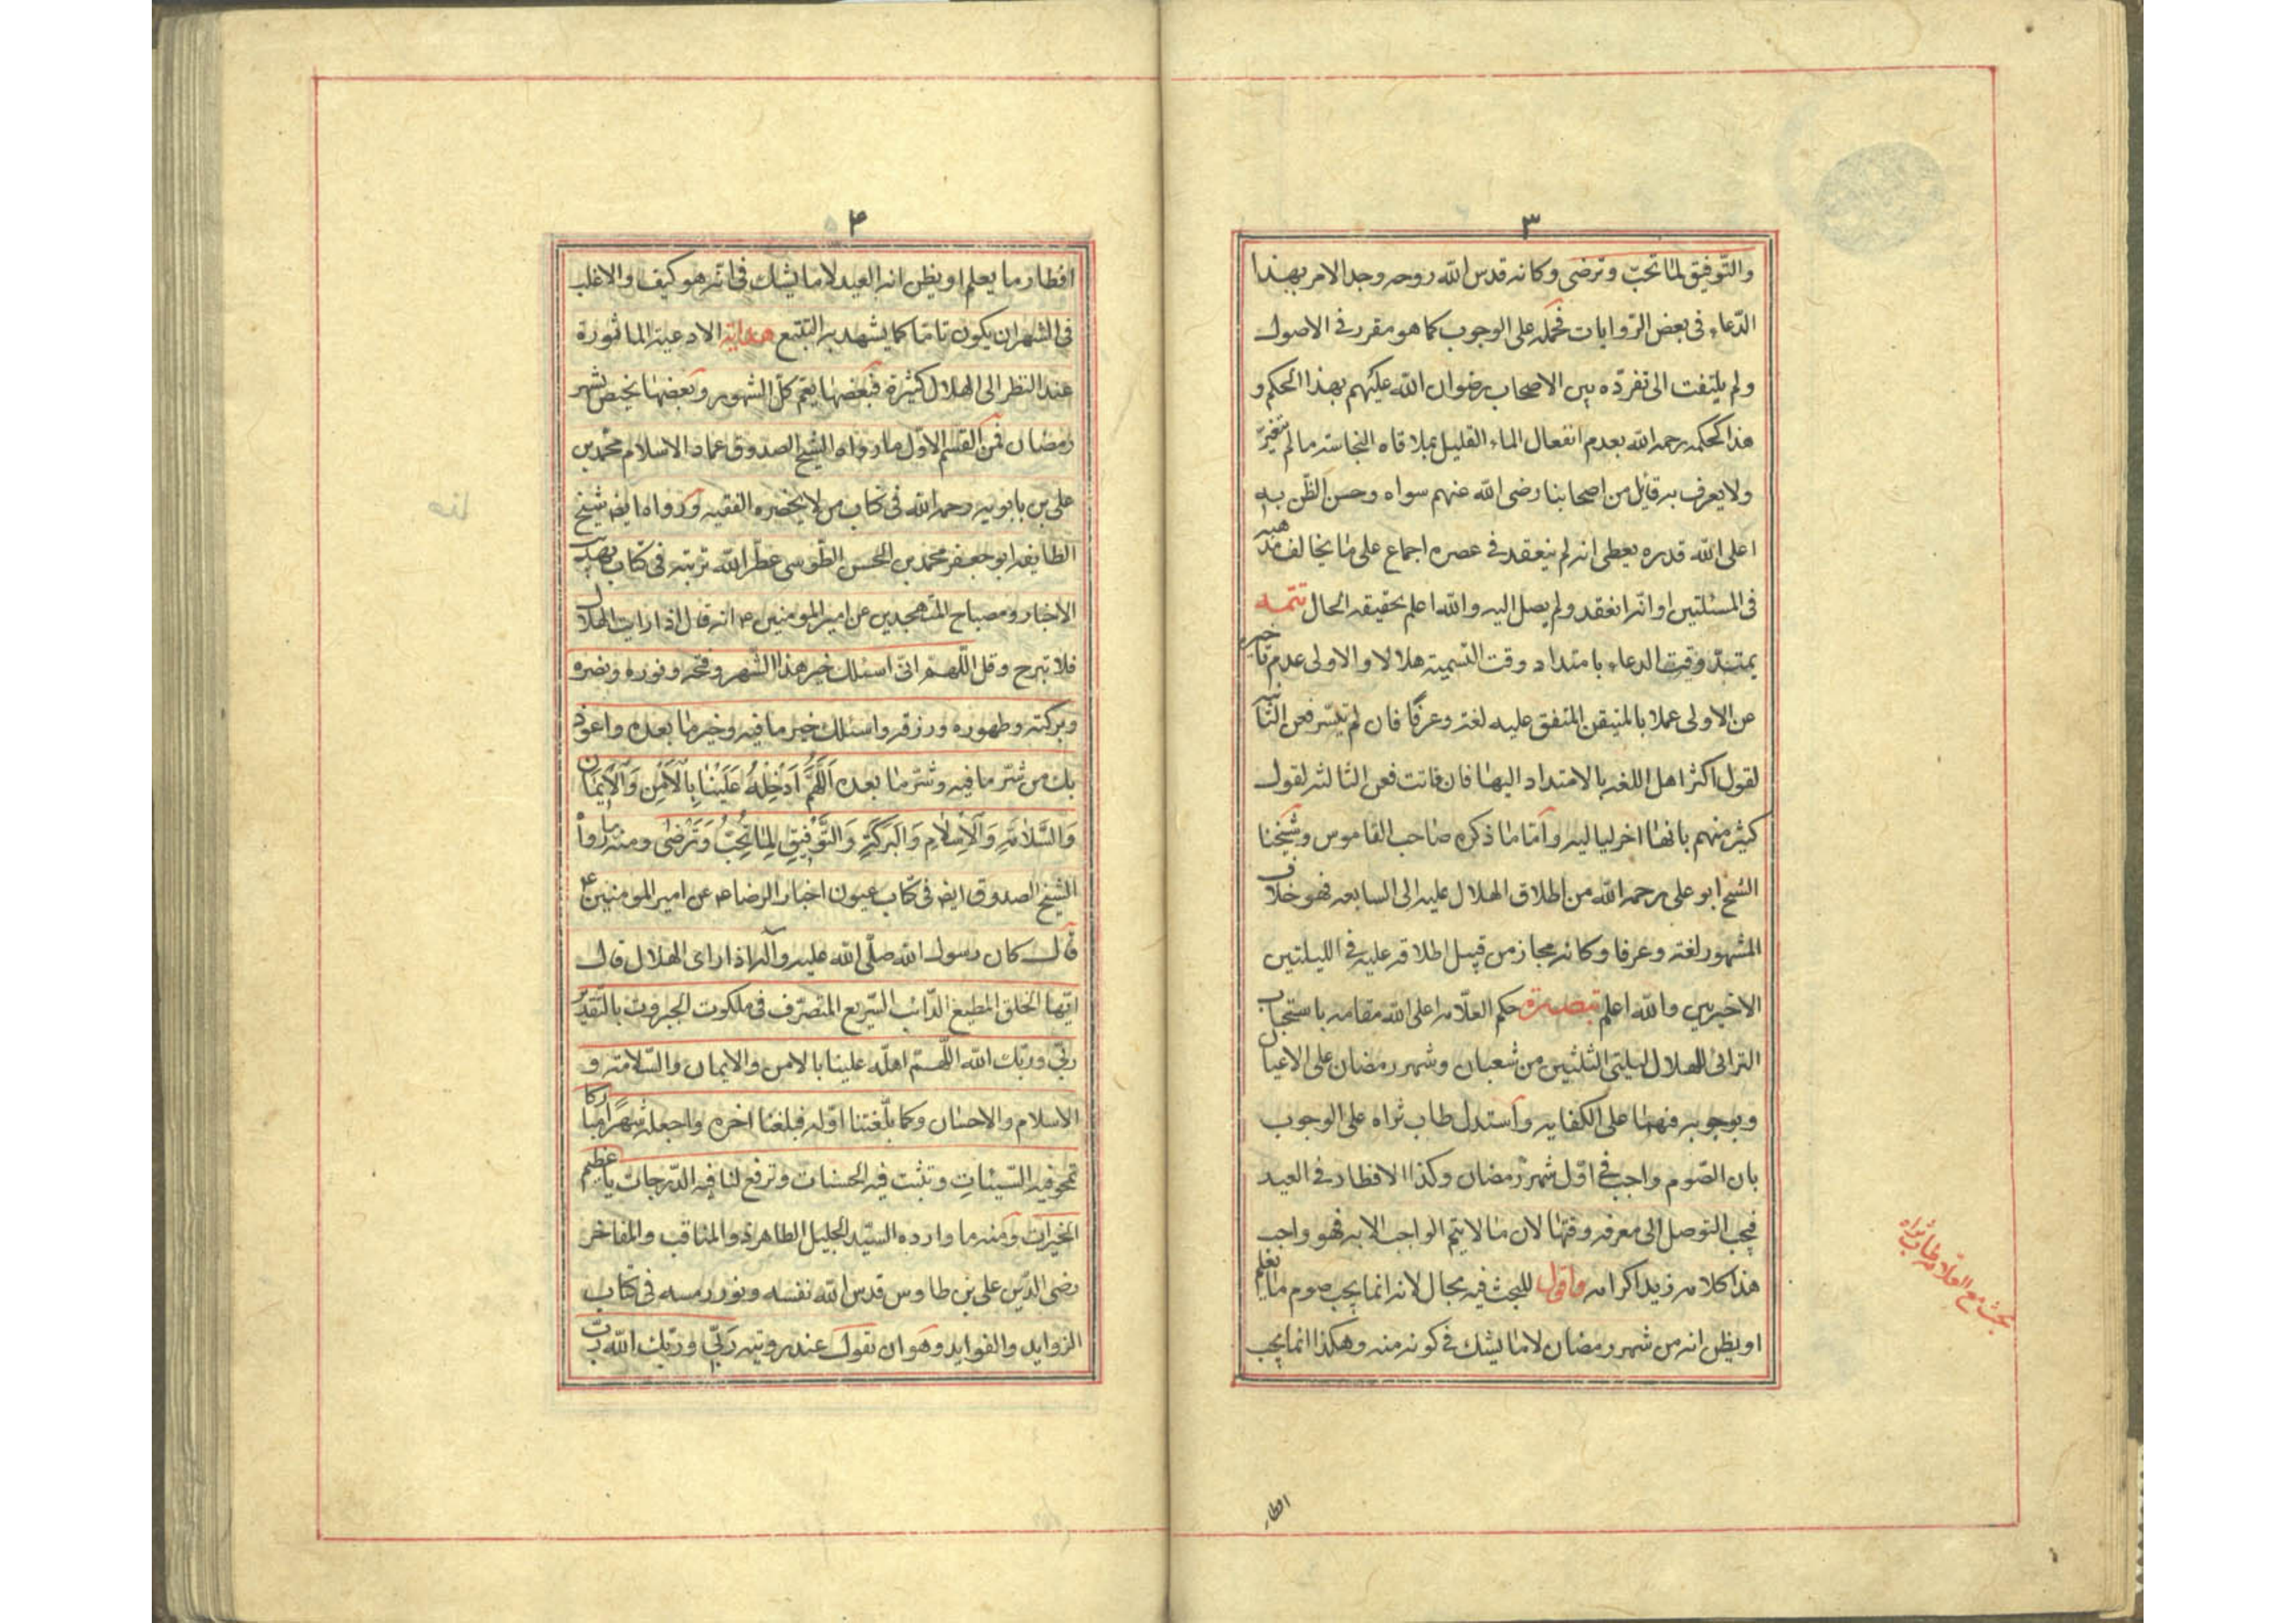 ٣
والتّوفيق لما تحبّ وترضى وكانه قدس الله روحه وجد الامر بهذا
الدّعاء فى بعض الرّوايات فحمله على الوجوب كما هو مقرر فى الاصول
ولم يلتفت الى تفرده بين الاصحاب رضوان الله عليهم بهذا الحكم و
هذا كحكمه رحمه الله بعدم انفعال الماء القليل بملاقاه النجاسة ما لم يتغيّر
ولا يعرف به قائل من اصحابنا رضى الله عنهم سواه وحسن الظّن به
اعلى الله قدره يعطى انه لم ينعقد فى عصره اجماع على ما يخالف مذهبه
فى المسئلتين او انّه انعقد ولم يصل اليه والله اعلم بحقيقه الحال تتمّه
يمتدّ وقت الدعاء بامتداد وقت التسمية هلالا والاولى عدم تاخيره
عن الاولى عملا بالمتيقن المتفق عليه لغة وعرفًا فان لم تيسّر فعن الثّانيه
لقول اكثر اهل اللغه بالامتداد اليها فان فاتت فعن الثالثه لقول
كثير منهم بانها اخر لياليه وامّا ما ذكره صاحب القاموس وشيخنا
الشيخ ابو على رحمه الله من اطلاق الهلال عليه الى السابعه فهو خلاف
المشهور لغة وعرفا وكانه مجاز من قبيل اطلاقه عليه فى الليلتين
الاخيرين والله اعلم تبصرة حكم العلّامه اعلى الله مقامه باستحباب
الترائى للهلال ليلتى الثلثين من شعبان وشهر رمضان على الاعيان
وبوجوبه فيهما على الكفايه واستدل طاب ثراه على الوجوب
بان الصّوم واجب فى اوّل شهر رمضان وكذا الافطار فى العيد
فيجب التوصل الى معرفه وقتهما لان ما لا يتم الواجب الا به فهو واجب
هذا كلامه زيد اكرامه واقول للبحث فيه مجال لانه انما يجب صوم ما يعلم
او يظن انه من شهر رمضان لا ما يشك فى كونه منه وهكذا انما يجب
بحث مع العلامه طاب ثراه
افطار
۴
افطار ما يعلم او يظن انه العيد لا ما يشك فى انّه هو كيف والاغلب
فى الشهر ان يكون تامّا كما يشهد به التتبّع هداية الادعية الماثورة
عند النظر الى الهلال كثيرة فبعضها يعمّ كلّ الشهور وبعضها يختص بشهر
رمضان فمن القسم الاوّل ما رواه الشيخ الصدوق عماد الاسلام محمّد بن
على بن بابويه رحمه الله فى كتاب من لا يحضره الفقيه ورواه ايض شيخ
الطايفه ابو جعفر محمد بن الحسن الطّوسى عطّر الله تربته فى كتاب تهذيب
الاخبار ومصباح المتهجدين عن امير المومنين ع انه قال اذا رايت الهلال
فلا تبرح وقل اللّهم انّى اسئلك خير هذا الشّهر وفتحه ونوره ونصره
وبركته وطهوره ورزقه واسئلك خير ما فيه وخير ما بعده واعوذ
بك من شرّ ما فيه وشرّ ما بعده اَللّهُمَّ اَدْخِلْهُ عَلَيْنا بِالْاَمْنِ وَالْايمانِ
وَالسَّلامَةِ وَالْاِسْلامِ وَالْبَرَكَةِ وَالتَّوْفيقِ لِما تُحِبُّ وَتَرْضى ومنه ما رواه
الشيخ الصدوق ايض فى كتاب عيون اخبار الرضا ع عن امير المومنين ع
قال كان رسول الله صلّى الله عليه وآله اذا راى الهلال قال
ايّها الخلق المطيع الدّائب السّريع المتصرّف فى ملكوت الجبروت بالتّقدير
ربّى وربّك الله اللّهمّ اهلّه علينا بالامن والايمان والسّلامة و
الاسلام والاحسان وكما بلّغتنا اوّله فبلغنا اخره واجعله شهرًا مباركا
تمحو فيه السّيئاتِ وتثبت فيه الحسنات وترفع لنا فيه الدّرجات يا عظيم
الخيرات ومنه ما اورده السّيّد الجليل الطاهر ذو المناقب والمفاخر
رضى الدّين على بن طاوس قدس الله نفسه ونور رمسه فى كتاب
الزوايد والفوايد وهو ان تقول عند رويته رَبّى وربّك الله ربّ